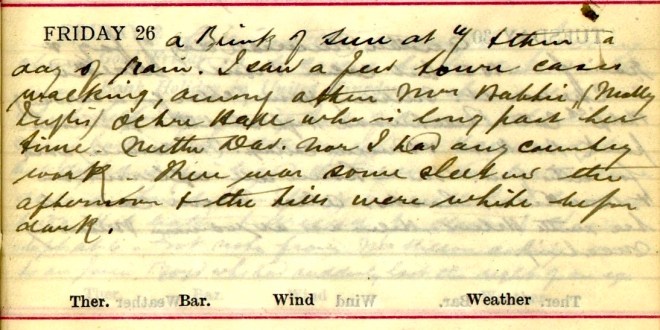 FRIDAY 26 a Blink of sun at 9 & then a
day of rain. I saw a few town cases
walking, among others Mrs (Molly
) Ochre Hall who is long past her
time. Neither Dav. nor I had any country
work. There was some sleet in the
afternoon & the hills were white before
dark.
Ther. Bar. Wind Weather